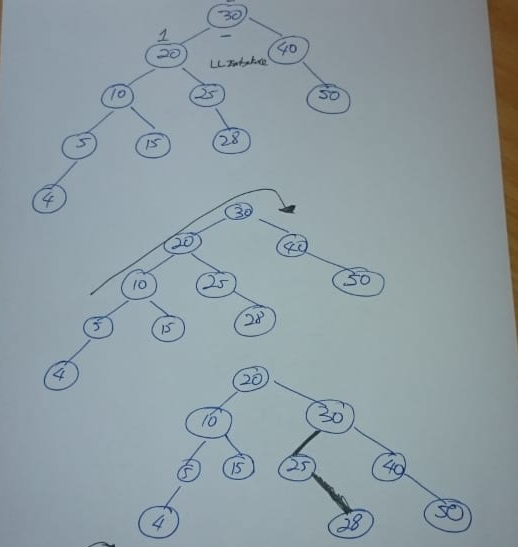 30
1
20
40
10
25
50
5
15
28
4
30
20
40
10
25
50
5
15
28
4
20
10
30
5
15
25
40
4
28
50